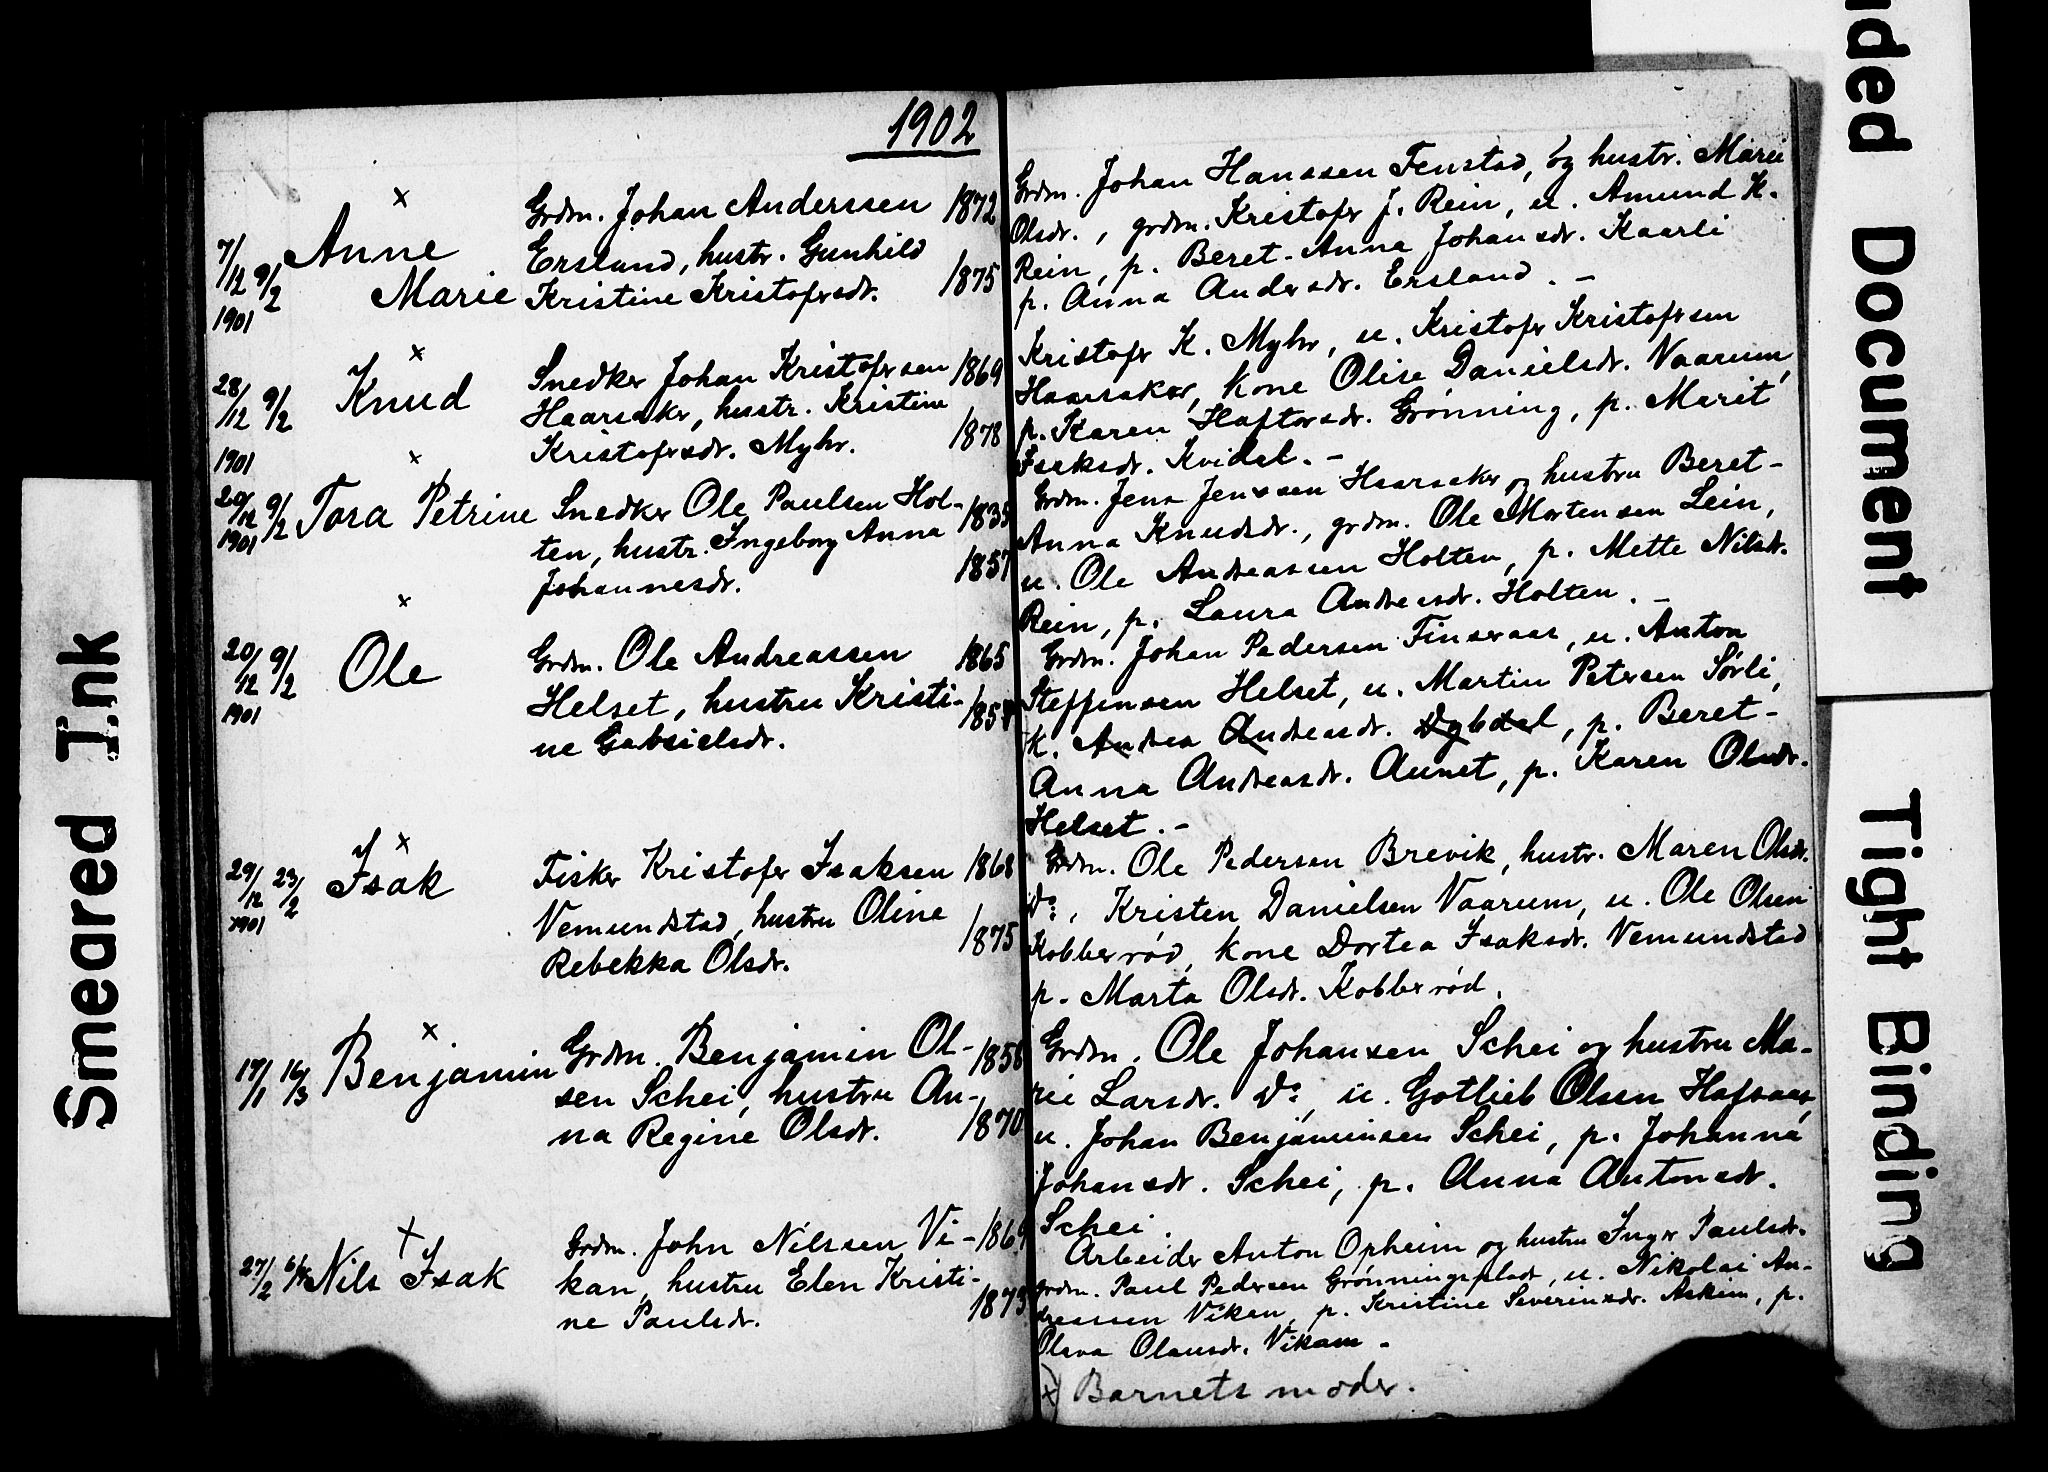 1902
×
Anne
Marie
7/12 9/2
1901
Grdm. Johan Anderssen 1872
Ersland, hustr. Gunhild
Kristine Kristofersdr. 1875
×
Knud
28/12 9/2
1901
Snedker Johan Kristofersen 1869
Haarsaker, hustr. Kristine
Kristofersdr. Myhr. 1878
×
20/12 9/2 Tora Petrine
1901
Snedker Ole Paulsen Hol- 1835
ten, hustr. Ingeborg Anna
Johannesdr. 1857
×
20/12 9/2 Ole
1901
Grdm. Ole Andreassen 1865
Helset, hustru Kristi-
ne Gabrielsdr.
×
29/12 23/2 Isak
1901
Fisker Kristofer Isaksen 1868
Vemundstad, hustru Oline
Rebekka Olsdr. 1875
×
17/1 16/3 Benjamin
Grdm. Benjamin Ol-
sen Schei, hustru An-
na Regine Olsdr. 1870
×
27/2 Nils Isak
Grdm. John Nilssen Vi-
kan, hustru Elen Kristi-
ne Paulsdr. 1873
Grdm. Johan Hanssen Fenstad, og hustr. Marie
Olsdr., grdm. Kristofer J. Rein, u. Amund K.
Rein, p. Beret-Anna Johansdr. Kaarli
p. Anna Andersdr. Ersland. -
Kristofer K. Myhr, u. Kristofer Kristofersen
Haarsaker, kone Olise Danielsdr. Vaarum,
p. Karen Haftorsdr. Grønning, p. Marit
Isaksdr. Kvidal. -
Grdm. Jens Jenssen Haarsaker og hustru Beret-
Anna Knudsdr., grdm. Ole Mortensen Lein,
u. Ole Andreassen Holten, p. Mette Nilsdr.
Rein, p. Laura Andreasdr. Holten. -
Grdm. Johan Pedersen Finseraas, u. Anton
Steffensen Helset, u. Martin Petersen Sørli,
k. Andrea Andreasdr. Dybdal, p. Beret-
Anna Andreasdr. Aunet, p. Karen Olsdr.
Helset. -
Grdm. Ole Pedersen Brevik, hustr. Maren Olsdr.
do:, Kristen Danielsen Vaarum, u. Ole Olsen
Kobberrød, kone Dortea Isaksdr. Vemundstad
p. Marta Olsdr. Kobberrød.
Grdm. Ole Johansen Schei og hustru Ma-
rie Larsdr. do:, u. Gotlieb Olsen Hafsaas,
u. Johan Benjaminsen Schei, p. Johanna
Johansdr. Schei, p. Anna Antonsdr.
Schei.
Arbeider Anton Opheim og hustru Inger Paulsdr.
grdm. Paul Pedersen Grønningsplads, u. Nikolai An-
dreassen Viken, p. Kristine Severinsdr. Askim, p.
Olava Olausdr. Vikan. -
×) Barnets moder.
Smeared Ink
nded Document
Tight Binding